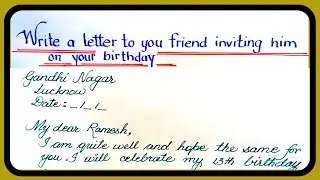 Write a letter to you friend inviting him
on your birthday
Gandhi Nagar
Lucknow
Date: _/_/_
My dear Ramesh,
I am quite well and hope the same for
you. I will celebrate my 13th birthday